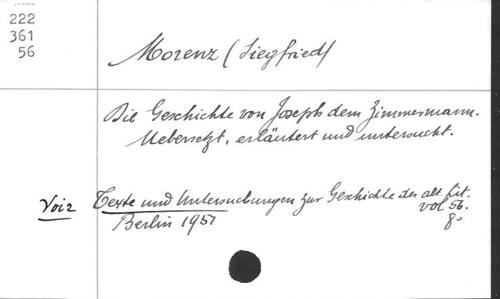 222
361
56
Morenz (Siegfried)
Die Geschichte von Joseph dem Zimmermann.
Uebersetzt, erläutert und untersucht.
Voir Texte und Untersuchungen zur Geschichte der alt. Lit.
vol 56.
Berlin 1951
8°